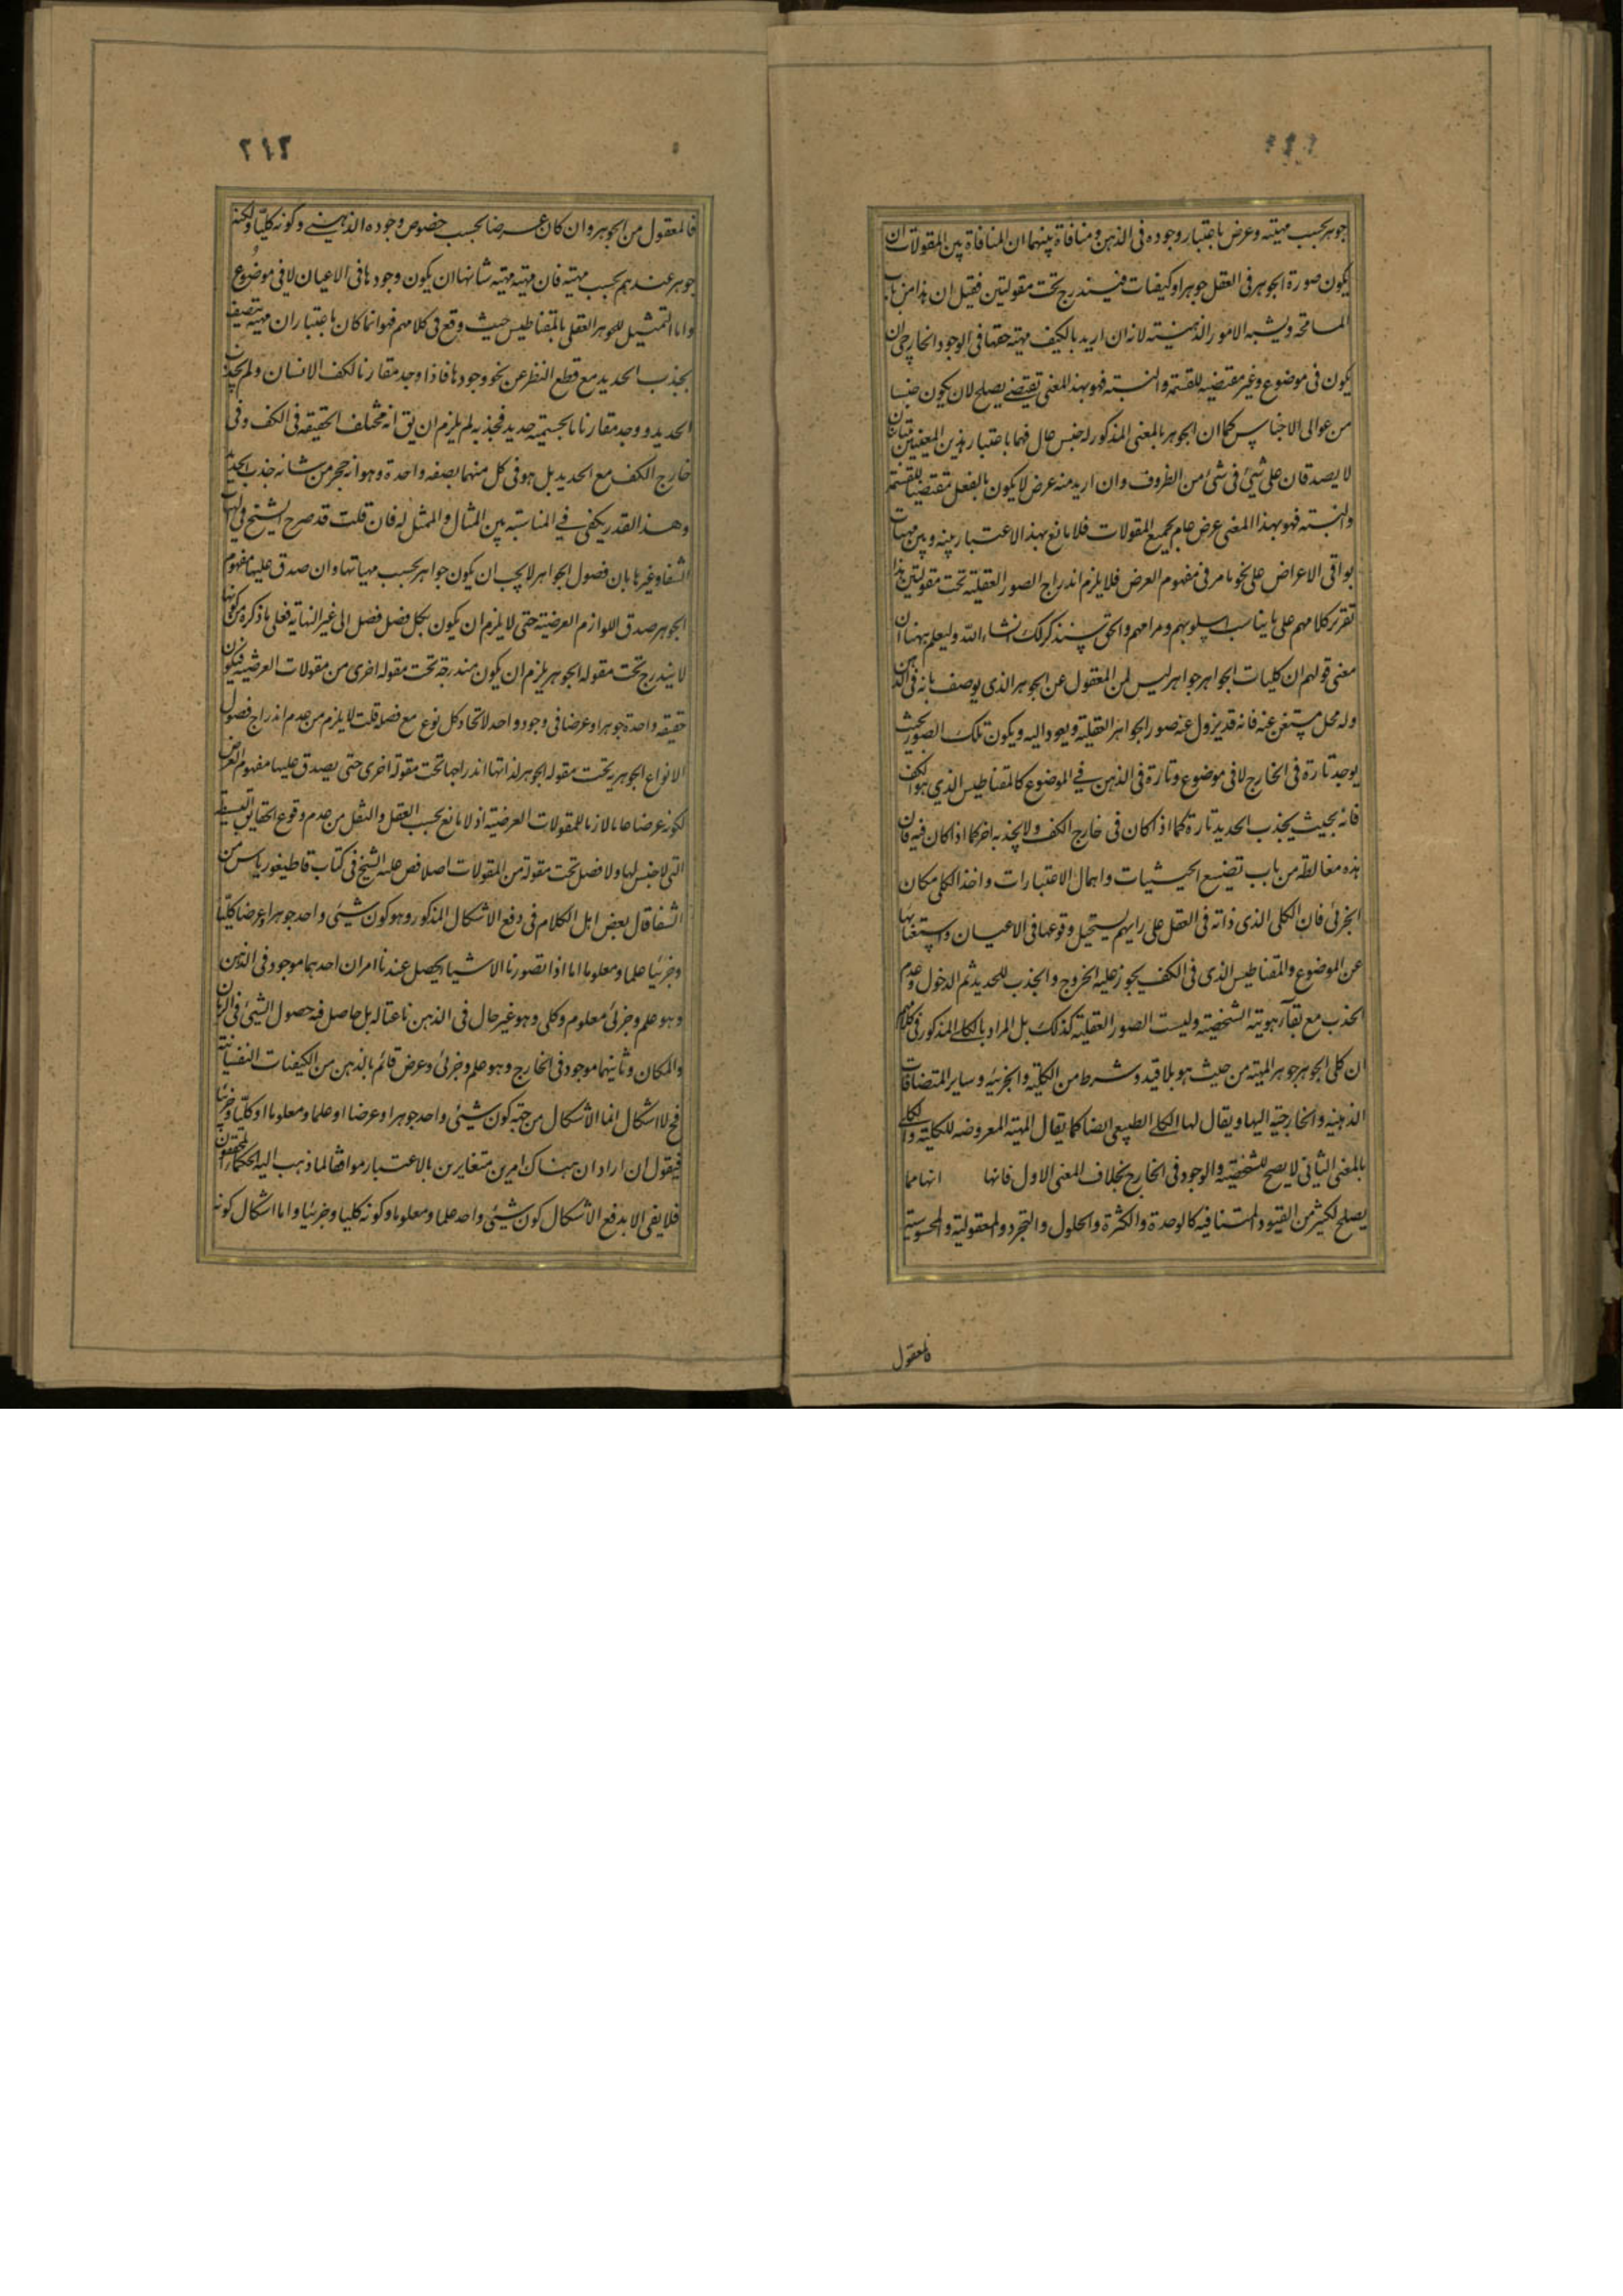 جوهر بحسب مهیته وعرض باعتبار وجوده فی الذهن ومنافاة بینهما ان المنافاة بین المقولات ان
یکون صورة الجوهر فی العقل جوهرا وکیفیات فیندرج تحت مقولتین فقیل ان هذا من باب
المسامحة ویشبه الامور الذهنیته لانه ان ارید بالکیف مهیته حقها فی الوجود الخارجی ان
یکون فی موضوع وغیر مقتضیه للقسمة والنسبته فهو بهذ المعنی یصلح لان یکون جنسا
من عوالی الاجناس کما ان الجوهر بالمعنی المذکور له جنس عال فهما باعتبار هذین المعنیین متباینان
لا یصدقان علی شئ فی شئ من الظروف وان ارید منه عرض لا یکون بالفعل مقتضیا للقسمة
والنسبته فهو بهذا المعنی عرض عام لجمیع المقولات فلا مانع بهذ الاعتبار بینه وبین مهیات
بواقی الاعراض علی نحو ما مر فی مفهوم العرض فلا یلزم اندراج الصور العقلیته تحت مقولتین هذا
تقریر کلامهم علی ما یناسب اسلوبهم ومرامهم والحق سنذکر لک انشاء الله ولیعلم ههنا ان
معنی قولهم ان کلیات الجواهر جواهر لیس ان المعقول عن الجوهر الذی یوصف بانه فی الذهن
وله محل مستغن عنه فانه قد یزول عنه صور الجواهر العقلیته ویعود الیه ویکون تلک الصور بحیث
یوجد تارة فی الخارج لا فی موضوع وتارة فی الذهن فی الموضوع کالمقناطیس الذی هو الکف
فانه بحیث یجذب الحدید تارة کما اذا کان فی خارج الکف ولا یجذبه اخر کما اذا کان فیه فان
هذه مغالطه من باب تضییع الحیثیات واهمال الاعتبارات واخذ الکلی مکان
الجزئی فان الکلی الذی ذاته فی العقل علی رایهم یستحیل وقوعها فی الاعیان واستغنائها
عن الموضوع والمقناطیس الذی فی الکف یجوز علیه الخروج والجذب للحدید ثم الدخول وعدم
الجذب مع بقآء هویته الشخصیته ولیست الصور العقلیته کذلک بل المراد بالکلی المذکور فی کلامهم
ان کلی الجوهر جوهر المهیته من حیث هو بلا قید وشرط من الکلیته والجزئیه وسایر المتضافات
الذهنیه والخارجیته الیها ویقال لها الکلی الطبیعی ایضا کما یقال للمهیته المعروضه للکلیته والکلی
بالمعنی الثانی لا یصح للشخصیته والوجود فی الخارج بخلاف المعنی الاول فانها انها مما
یصلح لکثیر من القیود المتنافیه کالوحدة والکثرة والحلول والتجرد والمعقولیته والمحسوسیته
فالمعقول
٢١٢
فالمعقول من الجوهر وان کان عرضا بحسب خصوص وجوده الذهنی وکونه کلیّا ولکنه
جوهر عندهم بحسب مهیته فان مهیته مهیته شانها ان یکون وجودها فی الاعیان لا فی موضوع
واما التمثیل للجوهر العقلی بالمقناطیس حیث وقع فی کلامهم فهو انما کان باعتبار ان مهیته تتصف
بجذب الحدید مع قطع النظر عن نحو وجودها فاذا وجد مقارنا لکف الانسان ولم یجذب
الحدید ووجد مقارنا بالجسمیته حدید فجذبه لم یلزم ان یق انه مختلف الحقیقه فی الکف وفی
خارج الکف مع الحدید بل هو فی کل منهما بصفه واحدة وهو انه حجر من شانه جذب الحدید
وهذ القدر یکفی فی المناسبته بین المثال والممثل له فان قلت قد صرح الشیخ فی الهیات
الشفا وغیرها بان فصول الجواهر لا یجب ان یکون جواهر بحسب مهیاتها وان صدق علیها مفهوم
الجوهر صدق اللوازم العرضیته حتی لا یلزم ان یکون لکل فصل فصل الی غیر النهایه فعلی ما ذکره من کونها
لا یندرج تحت مقوله الجوهر یلزم ان یکون مندرجه تحت مقوله اخری من مقولات العرضیه فیکون
حقیقه واحدة جوهرا وعرضا فی وجود واحد لاتحاد کل نوع مع فصله قلت لا یلزم من عدم اندراج فصول
الانواع الجوهریه تحت مقوله الجوهر لذاتها اندراجها تحت مقوله اخری حتی یصدق علیها مفهوم العرض
لکونه عرضا عاما لازما للمقولات العرضیته اذ لا مانع بحسب العقل والنقل من عدم وقوع الحقایق البسیطه
التی لا جنس لها ولا فصل تحت مقوله من المقولات اصلا فص علیه الشیخ فی کتاب قاطیغوریاس من
الشفا قال بعض اهل الکلام فی دفع الاشکال المذکور وهو کون شیئی واحد جوهرا وعرضا کلیّا
وجزئیا علما ومعلوما اما اذا تصورنا الاشیا یحصل عندنا امران احدهما موجود فی الذهن
وهو علم وجزئی معلوم وکلی وهو غیر حال فی الذهن ناعتا له بل حاصل فیه حصول الشیئ فی الزمان
والمکان وثانیهما موجود فی الخارج وهو علم وجزئی وعرض قائم بالذهن من الکیفیات النفسانیته
فح لا اشکال انما الاشکال من جهته کون شیئی واحد جوهرا وعرضا او علما ومعلوما او کلیّا وجزئیا
فیقول ان اراد ان هناک امرین متغایرین بالاعتبار موافقا لما ذهب الیه الحکما المحققون
فلا یفی الا بدفع الاشکال کون شیئی واحد علما ومعلوما وکونه کلیا وجزئیا واما اشکال کونه